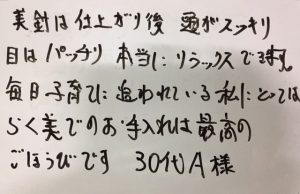 美針は仕上がり後 頭がスッキリ
目はパッチリ 本当にリラックスできます。
毎日子育てに追われている私にとっては
らく美でのお手入れは最高の
ごほうびです 30代A様